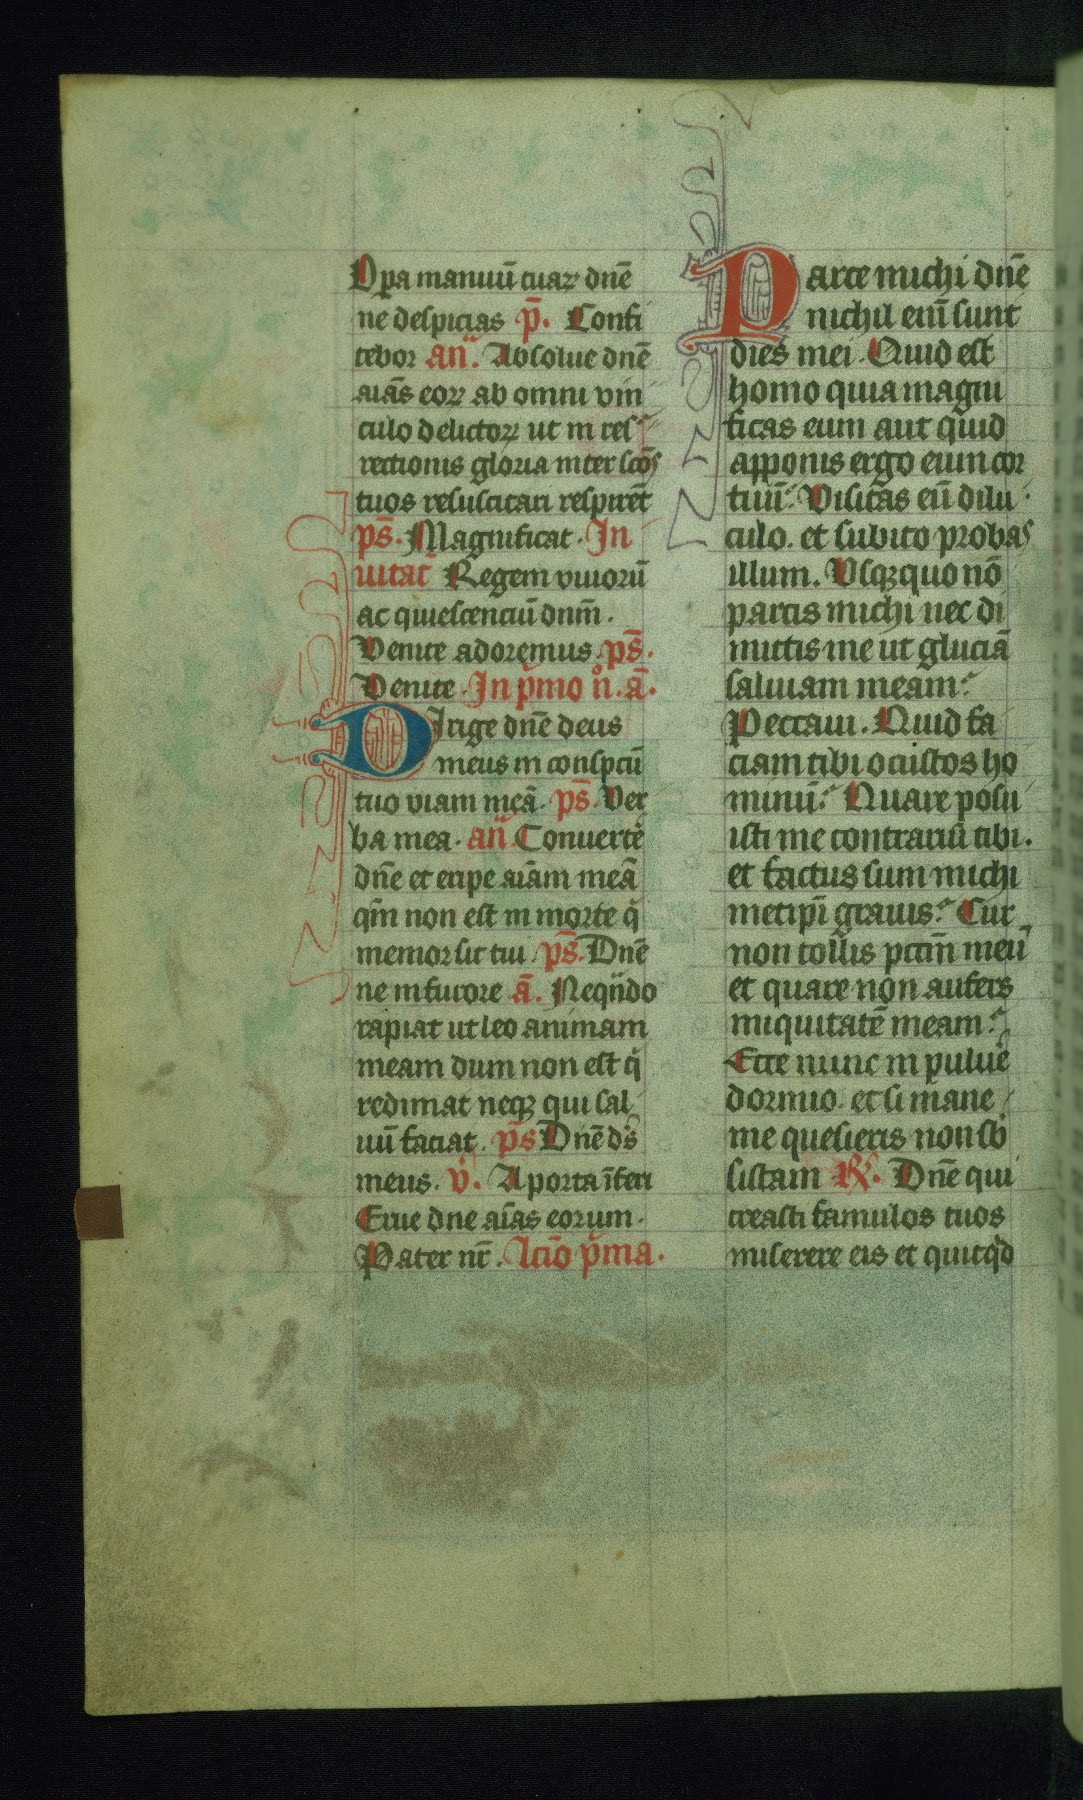 Opa manuū tuaꝝ dn̄e
ne despicias p̄. Confi
tebor an̄. Absolue dn̄e
aiās eoꝝ ab omni vin
culo delictoꝝ ut in res
rectionis gloria inter scōs
tuos resuscitati respirēt
ps̄. Magnificat. In
uitat̄ Regem viuorū
ac quiescenciū dnm̄.
Venite adoremus. ps̄.
Venite. In p̄mo n̊. a̅.
Dirige dn̄e deus
meus in conspcū
tuo viam meā. ps̄. Ver
ba mea. an̄ Conuerte
dn̄e et eripe aīam meā
qm̄ non est in morte q̇
memor sit tui. ps̄. Dn̄e
ne in furore a̅. Neqn̄do
rapiat ut leo animam
meam dum non est q̇
redimat neqꝫ qui sal
uū faciat. ps̄ Dn̄e ds̄
meus. v̇. A porta īferi
Erue dne aīas eorum.
Pater nr̄. Lcīo p̄ma.
Parce michi dn̄e
nichil enī sunt
dies mei. Quid est
homo quia magni
ficas eum aut quid
apponis ergo eum cor
tuū. Visitas eū dilu
culo. et subito probas
illum. Vsqꝫ quo nō
parcis michi nec di
mittis me ut gluciā
saliuam meam.
Peccaui. Quid fa
ciam tibi o custos ho
minū. Quare posu
isti me contrariū tibi.
et factus sum michi
metipi̅ grauis. Cur
non tollis pctm̄ meū
et quare non aufers
iniquitatē meam.
Ecce nunc in puluē
dormio. et si mane
me quesieris non sb̄
sistam ℟. Dn̄e qui
creasti famulos tuos
miserere eis et quicqd̄